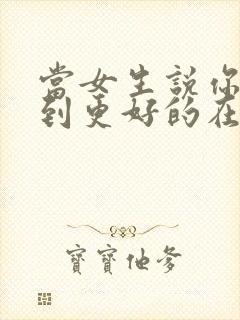 當女生說你
到更好的在
寶寶他爹